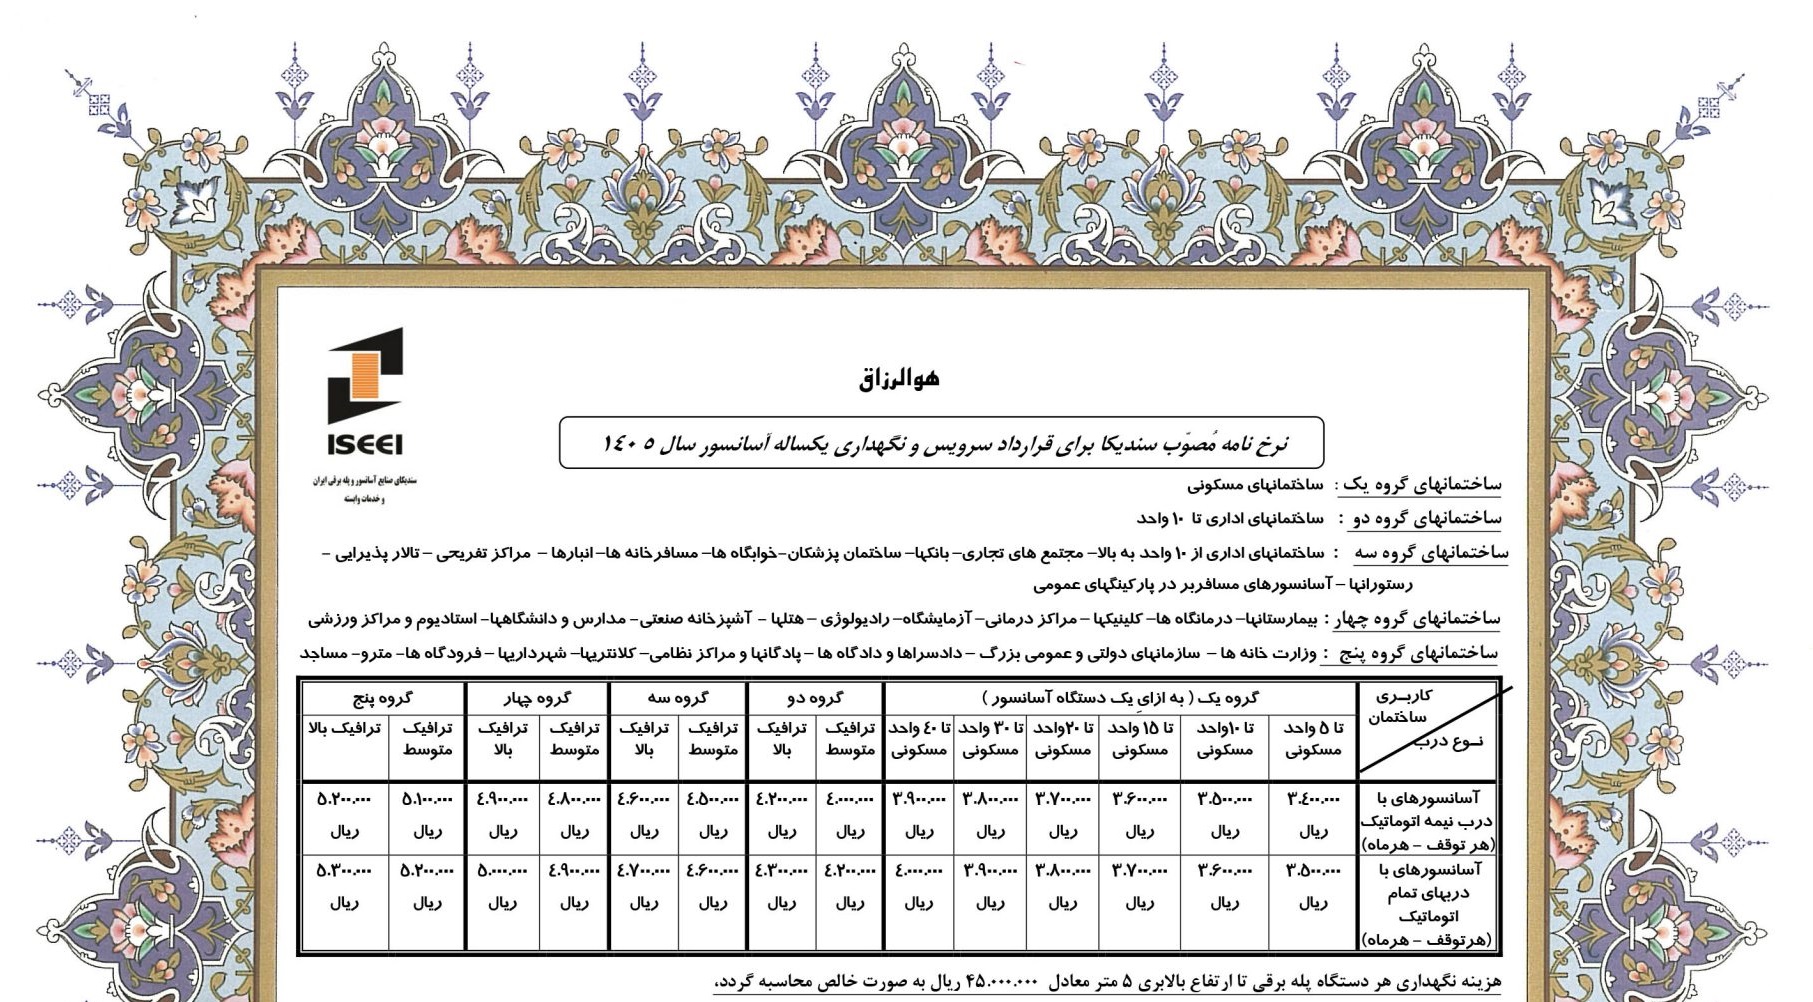 هوالرزاق
ISEEI
سندیکای صنایع آسانسور و پله برقی ایران
و خدمات وابسته
نرخ نامه مُصوّب سندیکا برای قرارداد سرویس و نگهداری یکساله آسانسور سال ۱۴۰۵
ساختمانهای گروه یک : ساختمانهای مسکونی
ساختمانهای گروه دو : ساختمانهای اداری تا ۱۰ واحد
ساختمانهای گروه سه : ساختمانهای اداری از ۱۰ واحد به بالا– مجتمع های تجاری– بانکها– ساختمان پزشکان–خوابگاه ها– مسافرخانه ها– انبارها – مراکز تفریحی – تالار پذیرایی –
رستورانها – آسانسورهای مسافربر در پارکینگهای عمومی
ساختمانهای گروه چهار : بیمارستانها– درمانگاه ها– کلینیکها – مراکز درمانی– آزمایشگاه– رادیولوژی – هتلها – آشپزخانه صنعتی– مدارس و دانشگاهها– استادیوم و مراکز ورزشی
ساختمانهای گروه پنج : وزارت خانه ها – سازمانهای دولتی و عمومی بزرگ – دادسراها و دادگاه ها – پادگانها و مراکز نظامی– کلانتریها– شهرداریها – فرودگاه ها– مترو– مساجد
کاربری ساختمان نوع درب گروه یک ( به ازای یک دستگاه آسانسور ) گروه دو گروه سه گروه چهار گروه پنج
تا ۵ واحد مسکونی تا ۱۰واحد مسکونی تا ۱۵ واحد مسکونی تا ۲۰واحد مسکونی تا ۳۰ واحد مسکونی تا ۴۰ واحد مسکونی ترافیک متوسط ترافیک بالا ترافیک متوسط ترافیک بالا ترافیک متوسط ترافیک بالا ترافیک متوسط ترافیک بالا
آسانسورهای با درب نیمه اتوماتیک (هر توقف – هرماه) ۳.۴۰۰.۰۰۰ ریال ۳.۵۰۰.۰۰۰ ریال ۳.۶۰۰.۰۰۰ ریال ۳.۷۰۰.۰۰۰ ریال ۳.۸۰۰.۰۰۰ ریال ۳.۹۰۰.۰۰۰ ریال ۴.۰۰۰.۰۰۰ ریال ۴.۲۰۰.۰۰۰ ریال ۴.۵۰۰.۰۰۰ ریال ۴.۶۰۰.۰۰۰ ریال ۴.۸۰۰.۰۰۰ ریال ۴.۹۰۰.۰۰۰ ریال ۵.۱۰۰.۰۰۰ ریال ۵.۲۰۰.۰۰۰ ریال
آسانسورهای با دربهای تمام اتوماتیک (هرتوقف – هرماه) ۳.۵۰۰.۰۰۰ ریال ۳.۶۰۰.۰۰۰ ریال ۳.۷۰۰.۰۰۰ ریال ۳.۸۰۰.۰۰۰ ریال ۳.۹۰۰.۰۰۰ ریال ۴.۰۰۰.۰۰۰ ریال ۴.۲۰۰.۰۰۰ ریال ۴.۳۰۰.۰۰۰ ریال ۴.۶۰۰.۰۰۰ ریال ۴.۷۰۰.۰۰۰ ریال ۴.۹۰۰.۰۰۰ ریال ۵.۰۰۰.۰۰۰ ریال ۵.۲۰۰.۰۰۰ ریال ۵.۳۰۰.۰۰۰ ریال
هزینه نگهداری هر دستگاه پله برقی تا ارتفاع بالابری ۵ متر معادل ۴۵.۰۰۰.۰۰۰ ریال به صورت خالص محاسبه گردد،